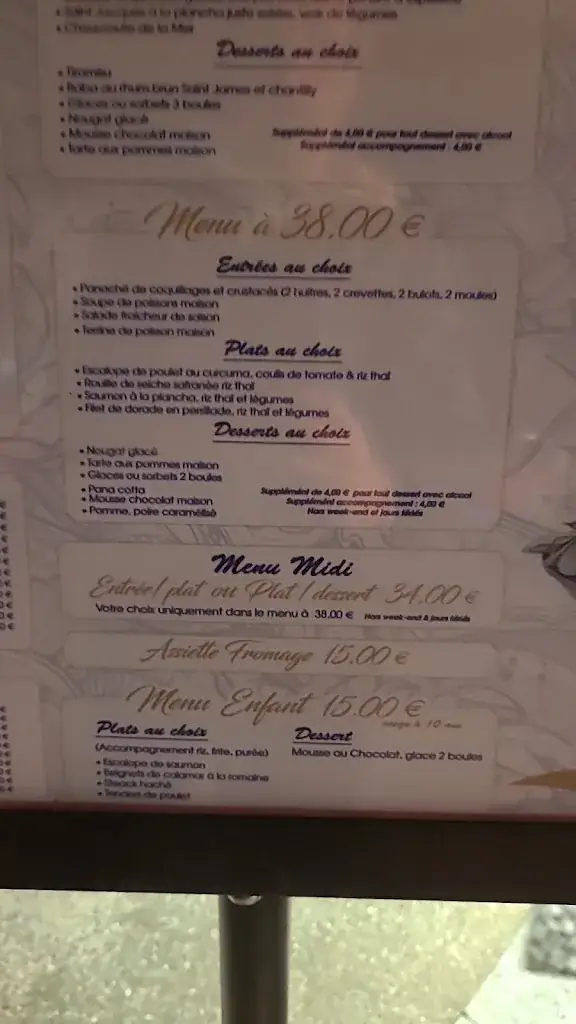 • Saint Jacques à la plancha juste salées, wok de légumes
• Choucroute de la Mer
Desserts au choix
• Tiramisu
• Baba au rhum brun Saint James et chantilly
• Glaces ou sorbets 3 boules
• Nougat glacé
• Mousse chocolat maison
• Tarte aux pommes maison
Supplément de 4,00 € pour tout dessert avec alcool
Supplément accompagnement : 4,00 €
Menu à 38.00 €
Entrées au choix
• Panaché de coquillages et crustacés (2 huîtres, 2 crevettes, 2 bulots, 2 moules)
• Soupe de poissons maison
• Salade fraîcheur de saison
• Terrine de poisson maison
Plats au choix
• Escalope de poulet au curcuma, coulis de tomate & riz thaï
• Rouille de seiche safranée riz thaï
• Saumon à la plancha, riz thaï et légumes
• Filet de dorade en persillade, riz thaï et légumes
Desserts au choix
• Nougat glacé
• Tarte aux pommes maison
• Glaces ou sorbets 2 boules
• Pana cotta
• Mousse chocolat maison
• Pomme, poire caramélisé
Supplément de 4,00 € pour tout dessert avec alcool
Supplément accompagnement : 4,00 €
Hors week-end et jours fériés
Menu Midi
Entrée/ plat ou Plat / dessert 34.00 €
Votre choix uniquement dans le menu à 38.00 € Hors week-end & jours fériés
Assiette Fromage 15.00 €
Menu Enfant 15.00 €
jusqu'à 10 ans
Plats au choix
(Accompagnement riz, frite, purée)
• Escalope de saumon
• Beignets de calamar à la romaine
• Steack haché
• Tenders de poulet
Dessert
Mousse au Chocolat, glace 2 boules